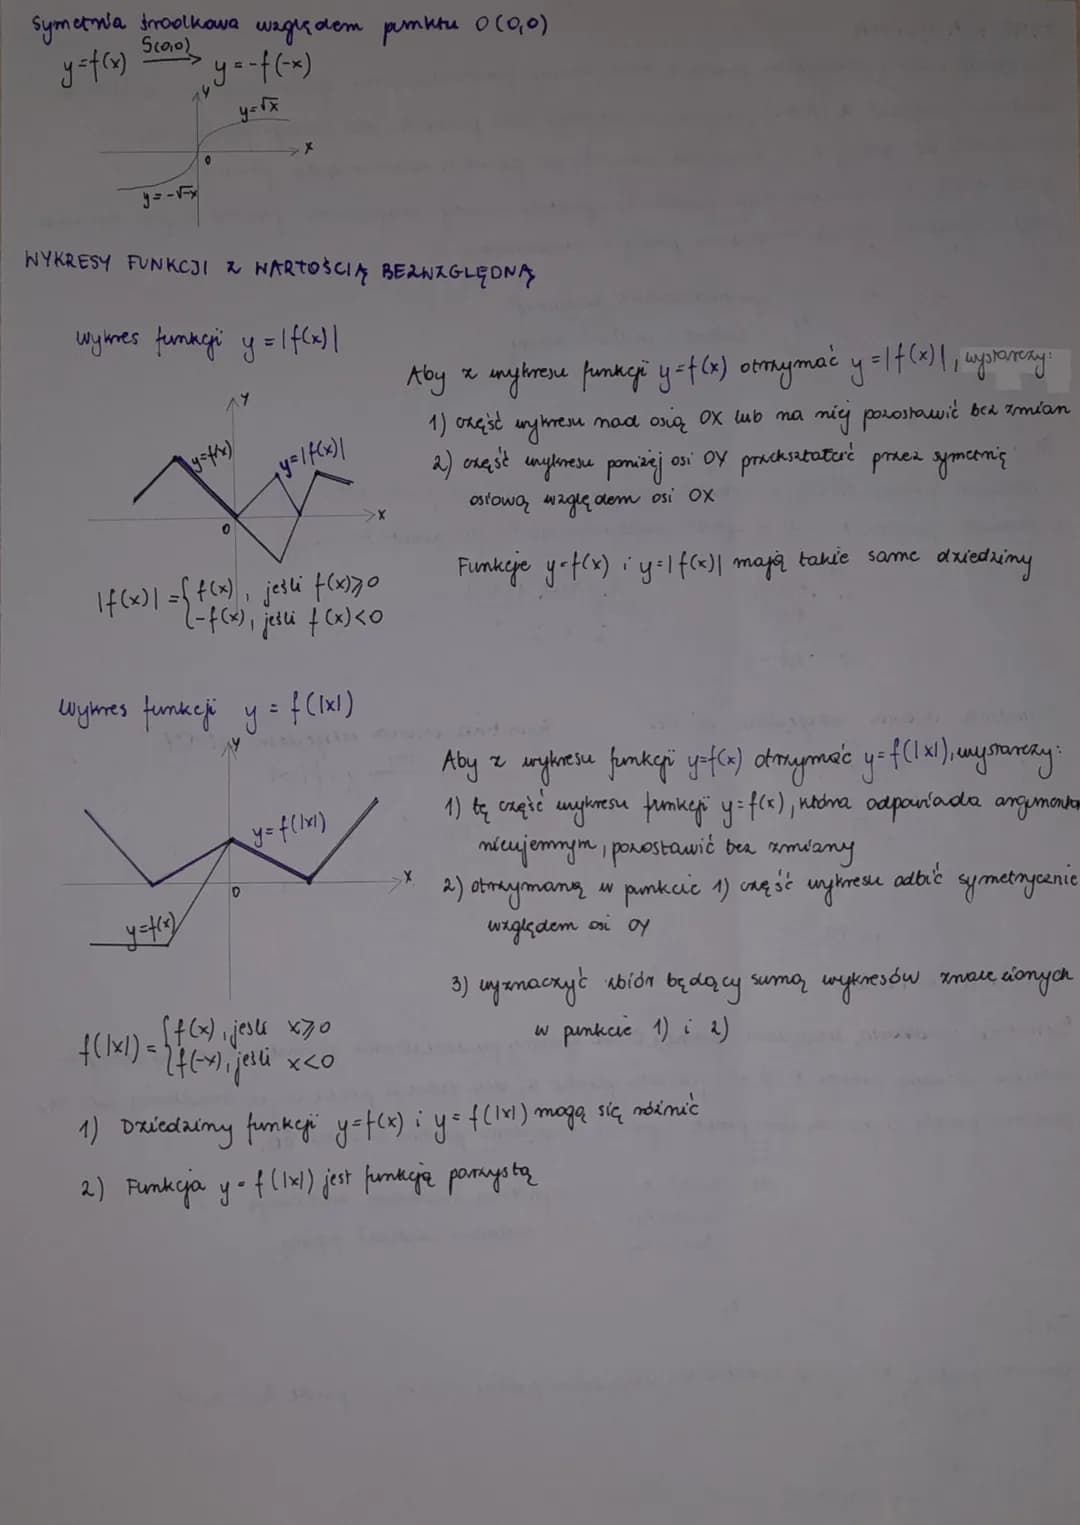 Symetria środkowa względem punktu O(0,0)
y=f(x) S(0,0) → y=-f(-x)
y
y=√x
x
0
y=-√-x
WYKRESY FUNKCJI Z WARTOŚCIĄ BEZWZGLĘDNĄ
Wykres funkcji y=|f(x)|
Aby z wykresu funkcji y=f(x) otrzymać y=|f(x)|, wystarczy:
1) część wykresu nad osią OX lub na niej pozostawić bez zmian
2) część wykresu poniżej osi OY przekształcić przez symetrię
osiową względem osi OX
Y
y=f(x)
y=|f(x)|
X
0
Funkcje y=f(x) i y=|f(x)| mają takie same dziedziny
|f(x)| = { f(x), jeśli f(x)⩾0
-f(x), jeśli f(x)<0
Wykres funkcji y = f(|x|)
Y
y=f(|x|)
X
0
y=f(x)
Aby z wykresu funkcji y=f(x) otrzymać y=f(|x|), wystarczy:
1) tę część wykresu funkcji y=f(x), która odpowiada argumentom
nieujemnym, pozostawić bez zmiany
2) otrzymaną w punkcie 1) część wykresu odbić symetrycznie
względem osi OY
3) wyznaczyć zbiór będący sumą wykresów znalezionych
w punkcie 1) i 2)
f(|x|) = { f(x), jeśli x⩾0
f(-x), jeśli x<0
1) Dziedziny funkcji y=f(x) i y=f(|x|) mogą się różnić
2) Funkcja y=f(|x|) jest funkcją parzystą